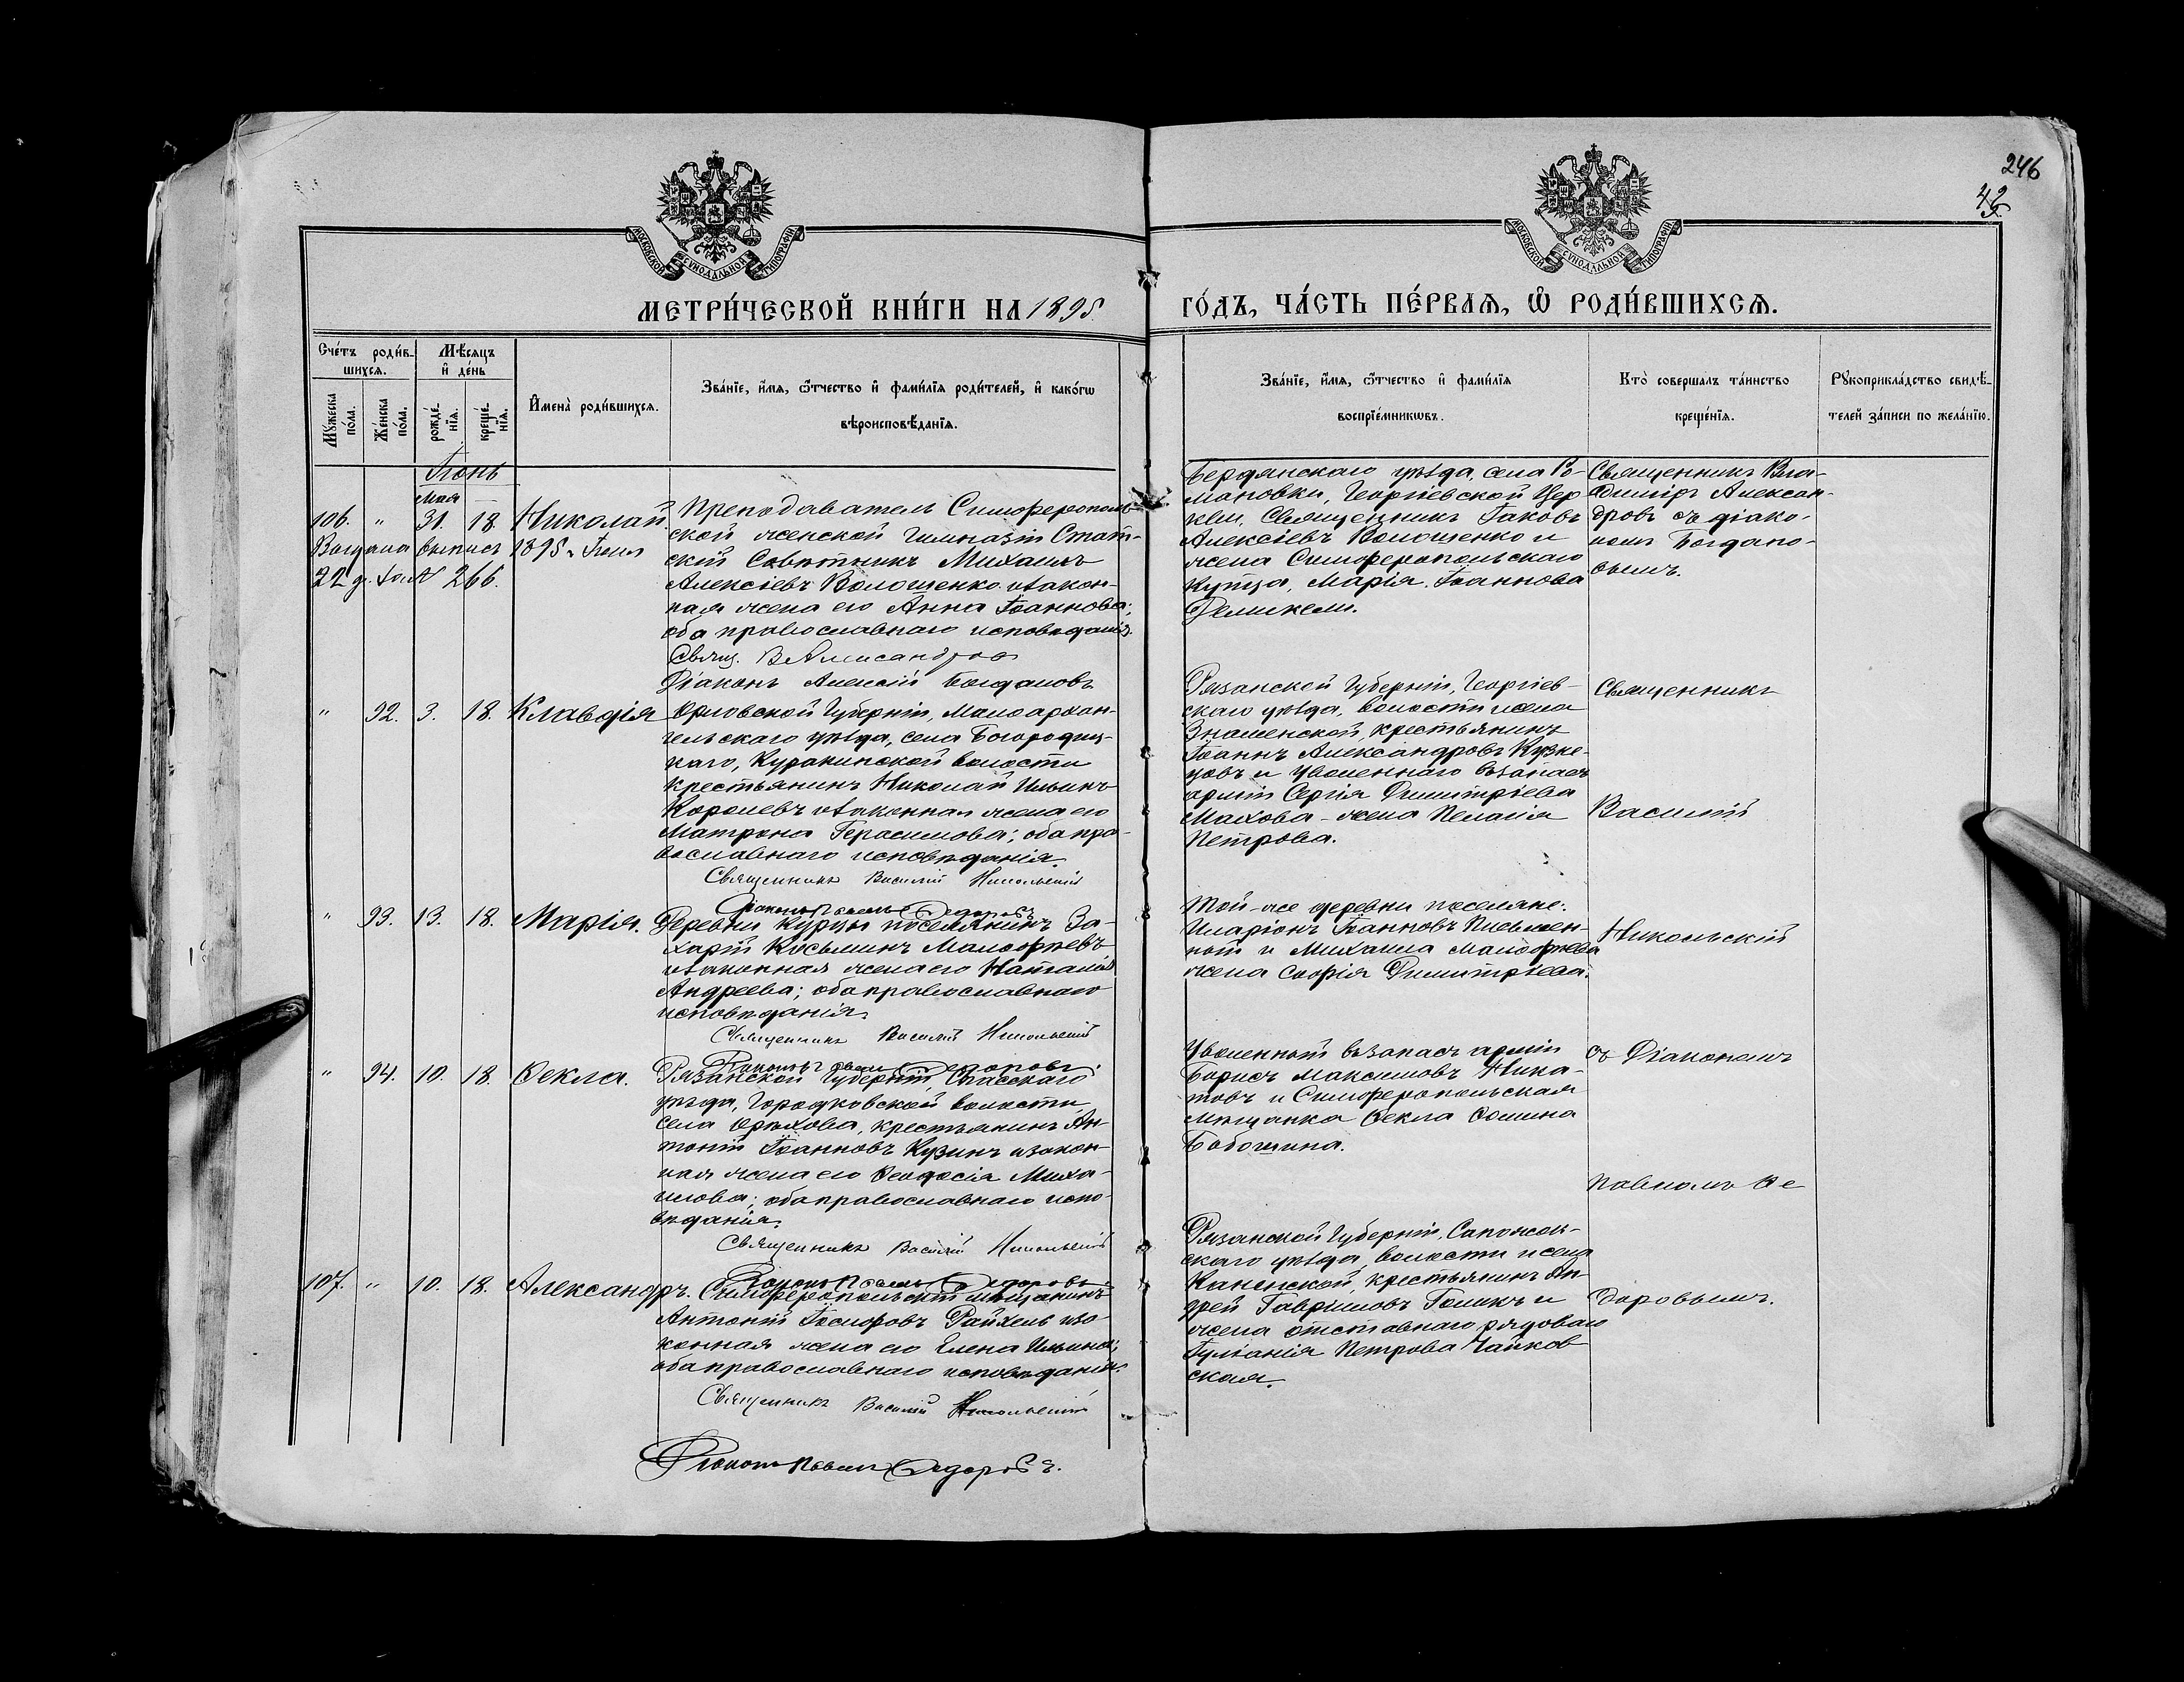 246
42
МОСКОВСКОЙ СѴНОДАЛЬНОЙ ТИПОГРАФІИ
МОСКОВСКОЙ СѴНОДАЛЬНОЙ ТИПОГРАФІИ
МЕТРИ́ЧЕСКОЙ КНИ́ГИ НА 1895
ГО́ДЪ, ЧА́СТЬ ПЕ́РВАѦ, Ѿ РОДИ́ВШИХСѦ.
Сче́тъ роди́в-
шихсѧ.
Мѣ́сѧцъ
и҆ де́нь
Мꙋ́жеска
по́ла.
Же́нска
по́ла.
рожде́-
нїѧ.
креще́-
нїѧ.
И҆мена̀ роди́вшихсѧ.
Зва́нїе, и҆́мѧ, ѻ҆́тчество и҆ фами́лїѧ роди́телей, и҆ како́гѡ
вѣроисповѣ́данїѧ.
Зва́нїе, и҆́мѧ, ѻ҆́тчество и҆ фами́лїѧ
воспрїе́мникѡвъ.
Кто̀ соверша́лъ та́инство
креще́нїѧ.
Рꙋкоприкла́дство свидѣ́-
телей за́писи по жела́нїю.
Іюнь
Мая
106. " 31. 18. Николай.
Выдана выпись 1895 г. Іюня
22 д. за № 266.
Преподаватель Симферополь-
ской женской гимназіи Стат-
скій Совѣтникъ Михаилъ
Алексіевъ Волошенко и закон-
ная жена его Анна Іоаннова;
оба православнаго исповѣданія.
Свящ. В Александровъ
Діаконъ Алексій Богдановъ
Бердянскаго уѣзда, села Ро-
мановки, Георгіевской Цер
кви, Священникъ Іаковъ
Алексіевъ Волошенко и
жена Симферопольскаго
купца, Марія Іоаннова
Священникъ Вла-
диміръ Алексан-
дровъ съ діако-
номъ Богдано-
вымъ.
" 92. 3. 18. Клавдія
Орловской Губерніи, Малоархан-
гельскаго уѣзда, села Богородиц-
каго, Куракинской волости
крестьянинъ Николай Ильинъ
Королевъ и законная жена его
Матрона Герасимова; оба пра-
вославнаго исповѣданія.
Священникъ Василій Никольскій
Діаконъ Павелъ Ѳедоровъ
Рязанской Губерніи, Георгіев-
скаго уѣзда, волости и села
Знаменской, крестьянинъ
Іоаннъ Александровъ Кузне-
цовъ и уволеннаго въ запасъ
арміи Сергія Димитріева
Махова - жена Пелагія
Петрова.
Священникъ
Василій
" 93. 13. 18. Марія.
Деревни Курцы поселянинъ За-
харій Косьминъ Малофѣевъ
и законная жена его Наталія
Андреева; оба православнаго
исповѣданія.
Священникъ Василій Никольскій
Діаконъ Павелъ Ѳедоровъ.
Той-же деревни поселяне:
Иларіонъ Іоанновъ Письмен-
ный и Михаила Малофѣева
жена Софія Димитріева.
Никольскій
" 94. 10. 18. Ѳекла.
Рязанской Губерніи, Спасскаго
уѣзда, Городковской волости,
села Орѣхова, крестьянинъ Ан-
тоній Іоанновъ Кузинъ и закон-
ная жена его Ѳеодосія Миха-
илова; оба православнаго испо-
вѣданія.
Священникъ Василій Никольскій
Діаконъ Павелъ Ѳедоровъ
Уволенный въ запасъ арміи
Борисъ Максимовъ Ника-
товъ и Симферопольская
мѣщанка Ѳекла Ѳомина
Бабошина.
съ Діакономъ
Павломъ Ѳе
107. " 10. 18. Александръ.
Симферопольскій мѣщанинъ
Антоній Іосифовъ Райхель и за-
конная жена его Елена Ильина;
оба православнаго исповѣданія.
Священникъ Василій Никольскій
Діаконъ Павелъ Ѳедоровъ.
Рязанской Губерніи, Сапожков-
скаго уѣзда, волости и села
Канинской, крестьянинъ Ан-
дрей Гавріиловъ Голикъ и
жена отставнаго рядоваго
Іуліанія Петрова Чайков
ская.
доровымъ.